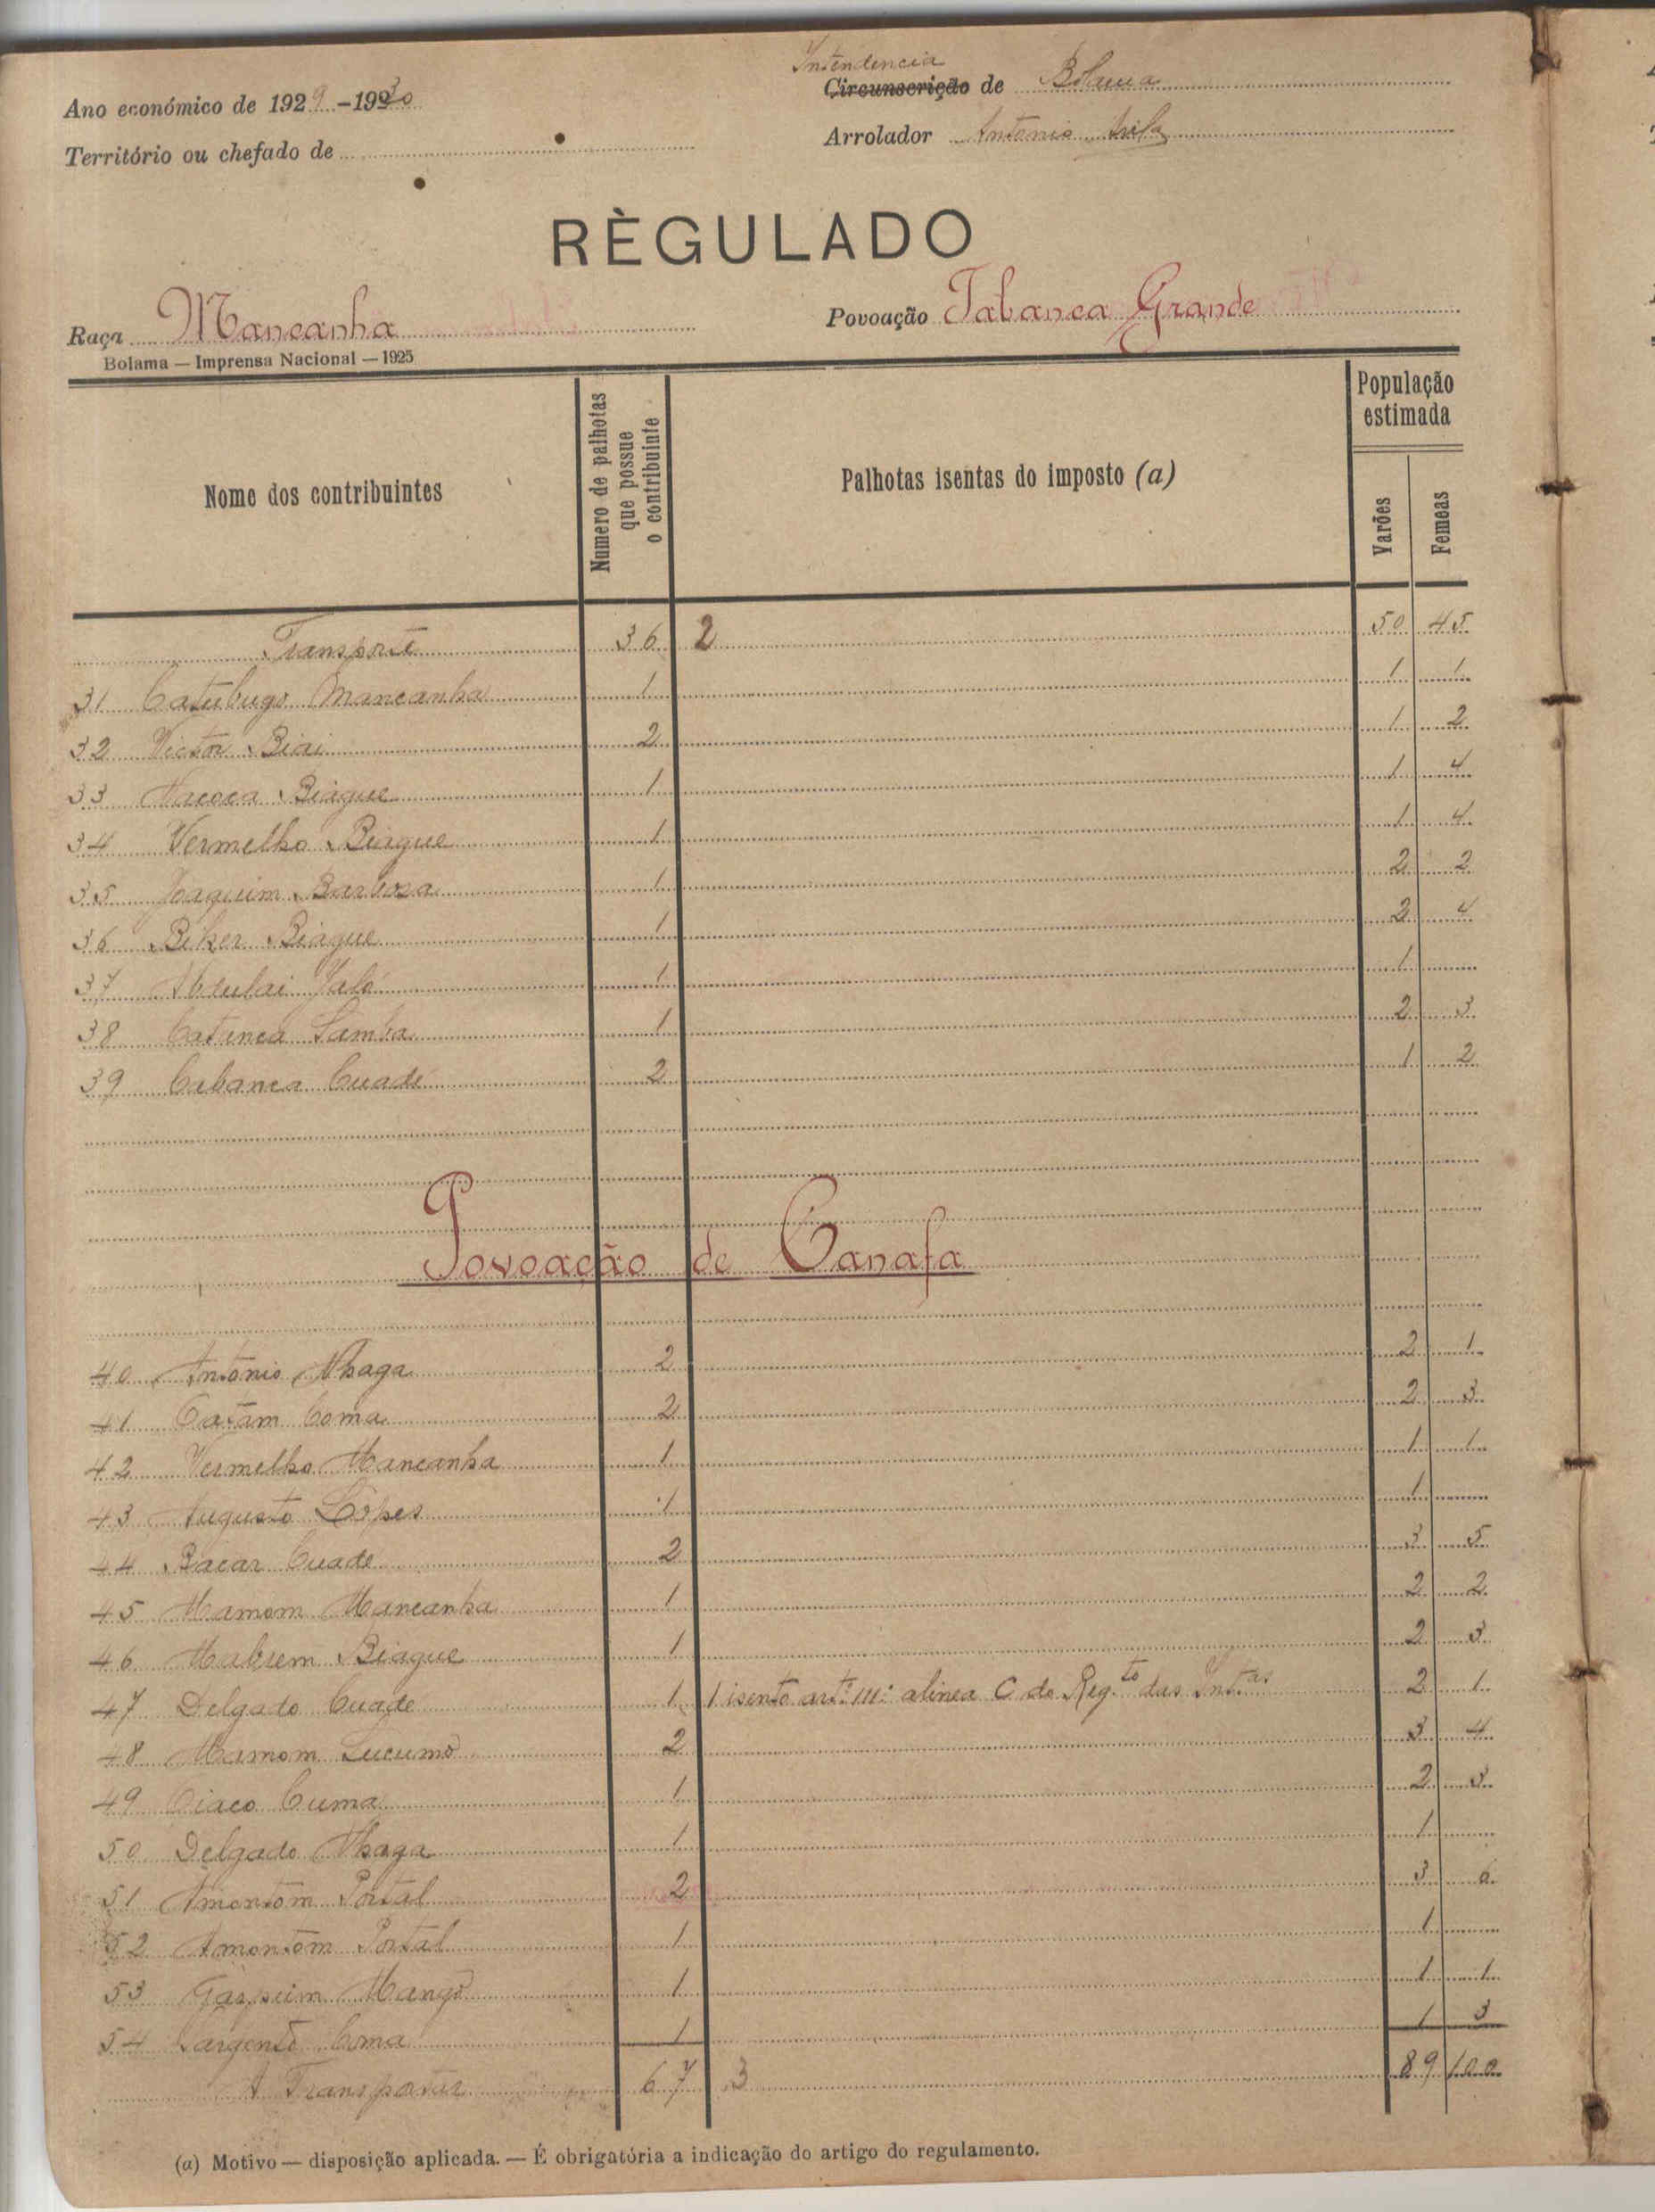 Intendencia
Ano económico de 1929-1930
Circunscrição de Bolama
Território ou chefado de
Arrolador António
RÈGULADO
Raça Mancanha
Povoação Tabanca Grande
Bolama — Imprensa Nacional — 1925
Nome dos contribuintes
Numero de palhotas que possue o contribuinte
Palhotas isentas do imposto (a)
População estimada
Varões
Femeas
Transporte 36 2 50 45
31 Catubugo Mancanha 1 1 1
32 Victor Biai 2 1 2
33 Nacoca Biague 1 1 4
34 Vermelho Biague 1 1 4
35 Joaquim Barboza 1 2 2
36 Biker Biague 1 2 4
37 Abdulai Jaló 1 1
38 Catanca Samba 1 2 3
39 Cabanca Cuadé 2 1 2
Povoação de Canafa
40 António Nhaga 2 2 1
41 Catam Coma 2 2 3
42 Vermelho Mancanha 1 1 1
43 Augusto Lopes 1 1
44 Bacar Cuade 2 3 5
45 Mamom Mancanha 1 2 2
46 Biague 1 2 3
47 Delgado Cuade 1 1 isento artº 111º alinea C do Reg.to das Int.as 2 1
48 Mamom Lucumó 2 3 4
49 Ciaco Cuma 1 2 3
50 Delgado Nhaga 1 1
51 Amontom Portal 2 3 6
52 Amontom Portal 1 1
53 Mango 1 1 1
54 Sargento Coma 1 1 3
A Transportar 67 3 89 100
(a) Motivo — disposição aplicada. — É obrigatória a indicação do artigo do regulamento.